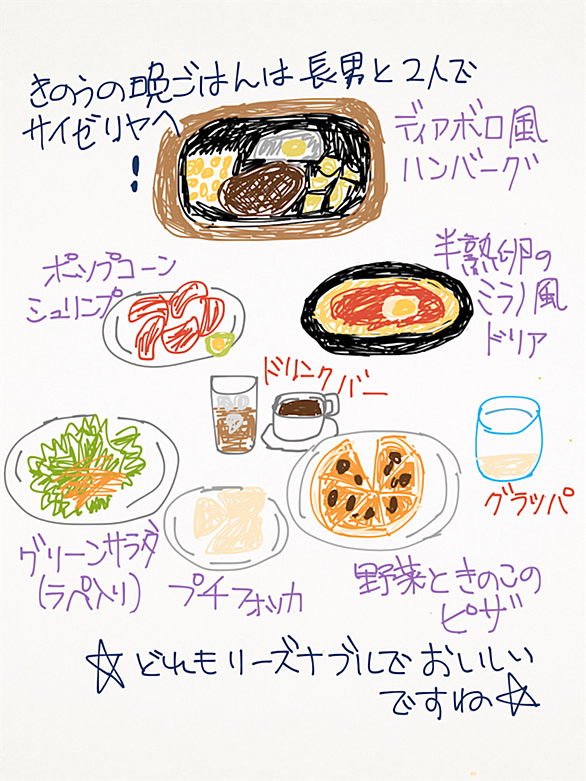 きのうの晩ごはんは長男と2人で
サイゼリヤへ
!
ディアボロ風
ハンバーグ
ポップコーン
シュリンプ
半熟卵の
ミラノ風
ドリア
ドリンクバー
グラッパ
グリーンサラダ
(ラペ入り)
プチフォッカ
野菜ときのこの
ピザ
☆どれもリーズナブルでおいしい
ですね☆